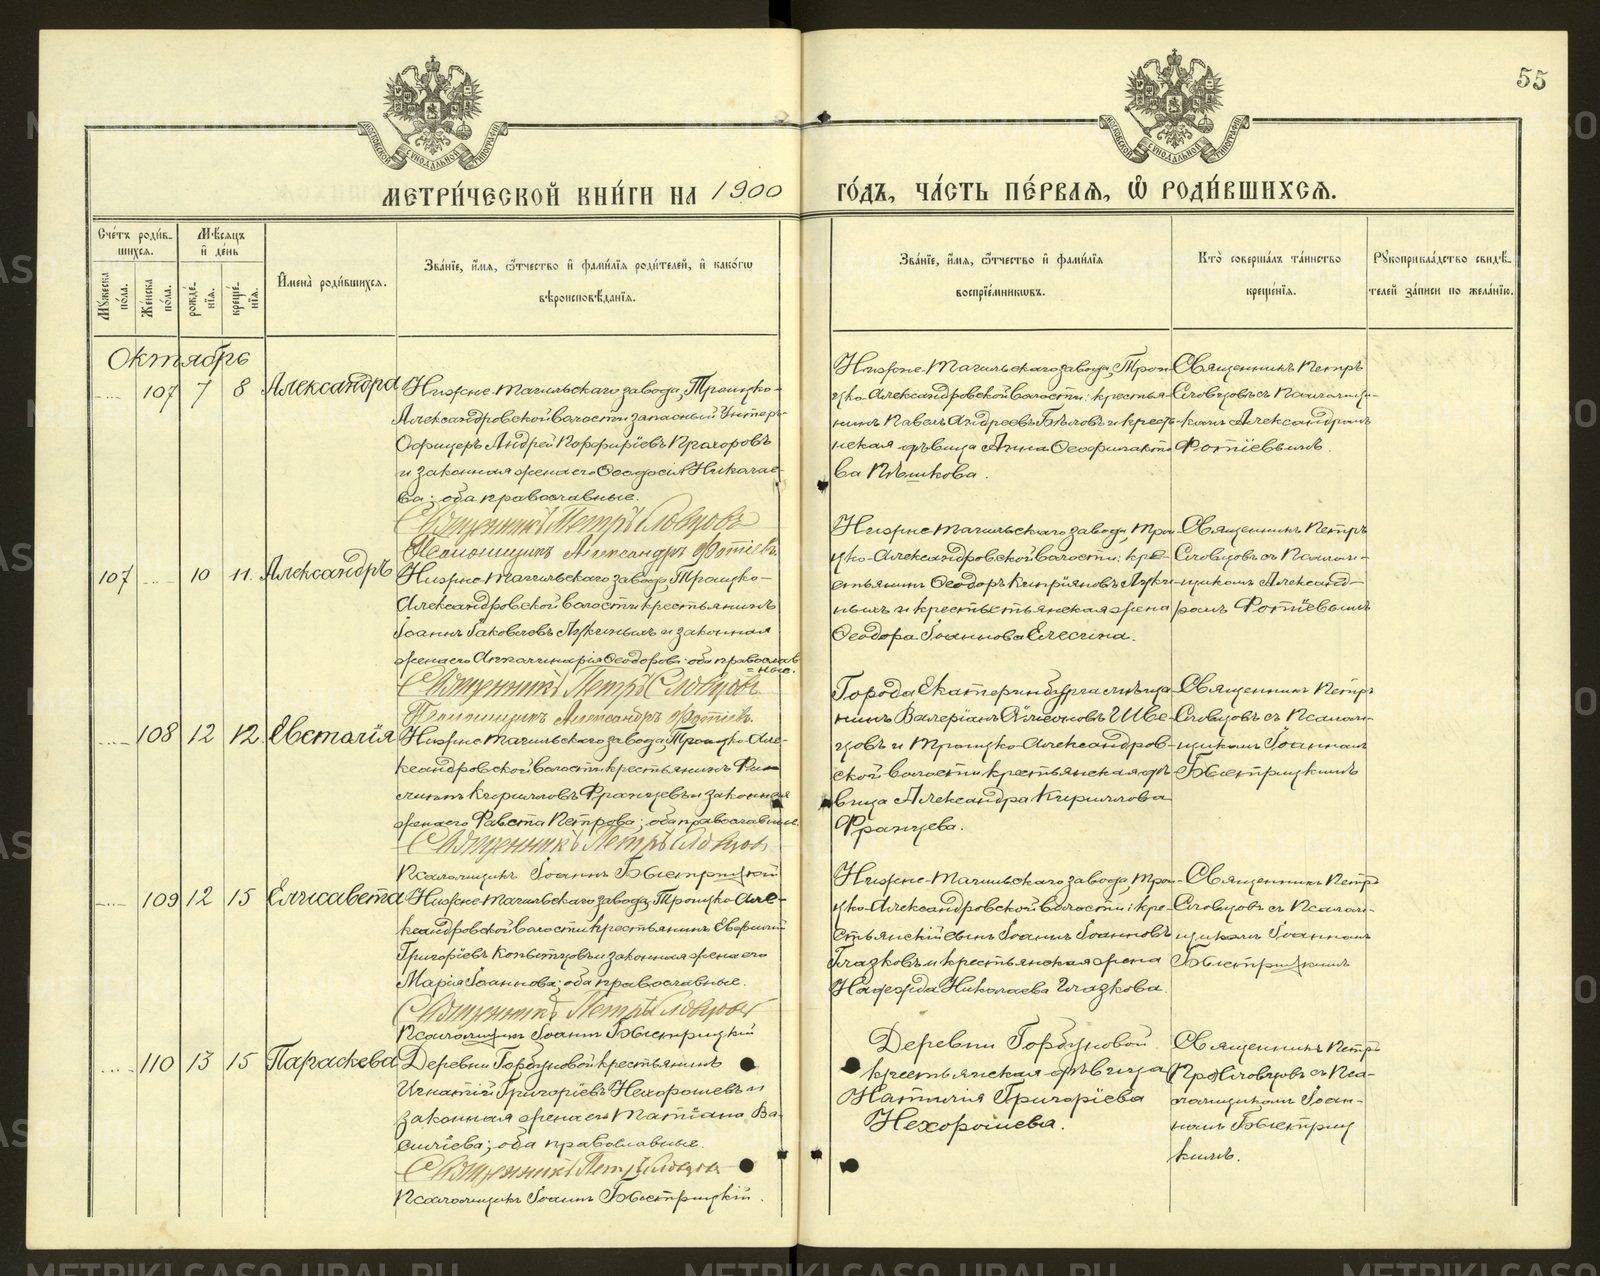 55
МОСКОВСКОЙ СѴНОДАЛЬНОЙ ТИПОГРАФІИ
МОСКОВСКОЙ СѴНОДАЛЬНОЙ ТИПОГРАФІИ
МЕТРИ́ЧЕСКОЙ КНИ́ГИ НА 1900
ГО́ДЪ, ЧА́СТЬ ПЕ́РВАЯ, Ѽ РОДИ́ВШИХСЯ.
Сче́тъ роди́в-
шихся.
Мѣ́сяцъ
и҆ де́нь
Му́жеска
по́ла.
Же́нска
по́ла.
рожде́-
нїя.
креще́-
нїя.
И҆мена̀ роди́вшихся.
Зва́нїе, и҆́мя, ѻ҆́тчество и҆ фами́лїя роди́телей, и҆ како́гѡ
вѣроисповѣ́данїя.
Зва́нїе, и҆́мя, ѻ҆́тчество и҆ фами́лїя
воспрїе́мникѡвъ.
Кто̀ соверша́лъ та́инство
креще́нїя.
Рꙋкоприкла́дство свидѣ́-
телей за́писи по жела́нїю.
Октябрь
107 7 8 Александра
Нижне-Тагильскаго завода, Троицко-
Александровской волости запасный Унтеръ-
Офицеръ Андрей Порфиріевъ Прохоровъ
и законная жена его Ѳеодосія Николае-
ва; оба православные.
Священникъ Петръ Словцовъ
Псаломщикъ Александръ Фотіевъ.
Нижне-Тагильскаго завода, Трои-
цко-Александровской волости: крестья-
нинъ Павелъ Андреевъ Бѣловъ и кресть-
нская дѣвица Анна Ѳеофилакто-
ва Пѣшкова.
Священникъ Петръ
Словцовъ съ Псаломщи-
комъ Александромъ
Фотіевымъ.
107 10 11. Александръ
Нижне-Тагильскаго завода, Троицко-
Александровской волости крестьянинъ
Іоаннъ Іаковлевъ и законная
жена его Апполинарія Ѳеодорова: оба православ
=ные.
Священникъ Петръ Словцовъ
Псаломщикъ Александръ Фотіевъ.
Нижне-Тагильскаго завода, Трои
цко-Александровской волости: кре-
стьянинъ Ѳеодоръ Кипріяновъ
и крестьянская жена
Ѳеодора Іоаннова Елесина.
Священникъ Петръ
Словцовъ съ Псалом-
щикомъ Александ-
ромъ Фотіевымъ
108 12 12. Евстолія
Нижне-Тагильскаго завода, Троицко-Але-
ксандровской волости крестьянинъ Фи-
липпъ Кирилловъ Францевъ и законная
жена его Фавста Петрова; оба православные.
Священникъ Петръ Словцовъ
Псаломщикъ Іоаннъ Быстрицкій
Города Екатеринбурга мѣща
нинъ Валеріанъ Симеоновъ Шве-
цовъ и Троицко-Александров-
ской волости крестьянская дѣ-
вица Александра Кириллова
Францева.
Священникъ Петръ
Словцовъ съ Псалом-
щикомъ Іоанномъ
Быстрицкимъ
109 12 15 Елисавета
Нижне-Тагильскаго завода, Троицко-Але-
ксандровской волости крестьянинъ
Григоріевъ Копытовъ и законная жена его
Марія Іоаннова; оба православные.
Священникъ Петръ Словцовъ
Псаломщикъ Іоаннъ Быстрицкій
Нижне-Тагильскаго завода, Трои-
цко-Александровской волости: кре-
стьянскій сынъ Іоаннъ Іоанновъ
Глазковъ и крестьянская жена
Надежда Николаева Глазкова.
Священникъ Петръ
Словцовъ съ Псалом-
щикомъ Іоанномъ
Быстрицкимъ
110 13 15 Параскева
Деревни Горбуновой крестьянинъ
Игнатій Григоріевъ Нехорошевъ и
законная жена его Татіана Ва-
силіева; оба православные.
Священникъ Петръ Словцовъ
Псаломщикъ Іоаннъ Быстрицкій.
Деревни Горбуновой
крестьянская дѣвица
Наталія Григоріева
Нехорошева.
Священникъ Петръ
Словцовъ съ Пса-
ломщикомъ Іоан-
номъ Быстриц
кимъ.